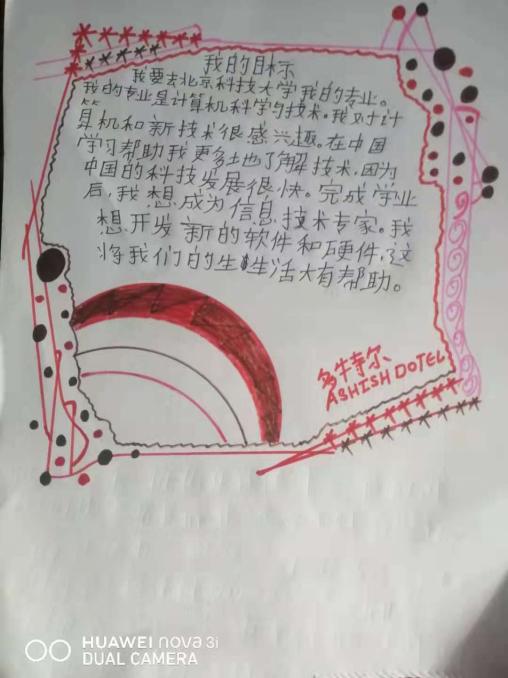 我的目标
我要去北京科技大学我的专业。
我的专业是计算机科学与技术。我对计
算机和新技术很感兴趣。在中国
学习帮助我更多地了解技术,因为
中国的科技发展很快。完成学业
后,我想成为信息技术专家。我
想开发新的软件和硬件,这
将我们的生生活大有帮助。
多牛特尔
ASHISH DOTEL
HUAWEI nova 3i
DUAL CAMERA